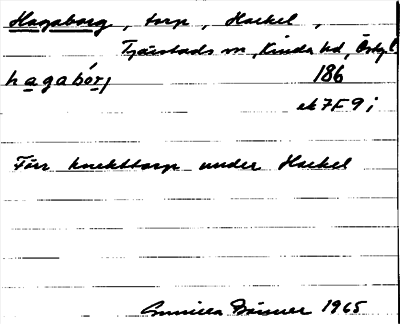 Hagaborg, torp, Hackel,
Tjärstads sn, Kinda hd, Östgl.
hagabórj 186
ek 7F 9i
Förr knekttorp under Hackel
Gunilla 1965